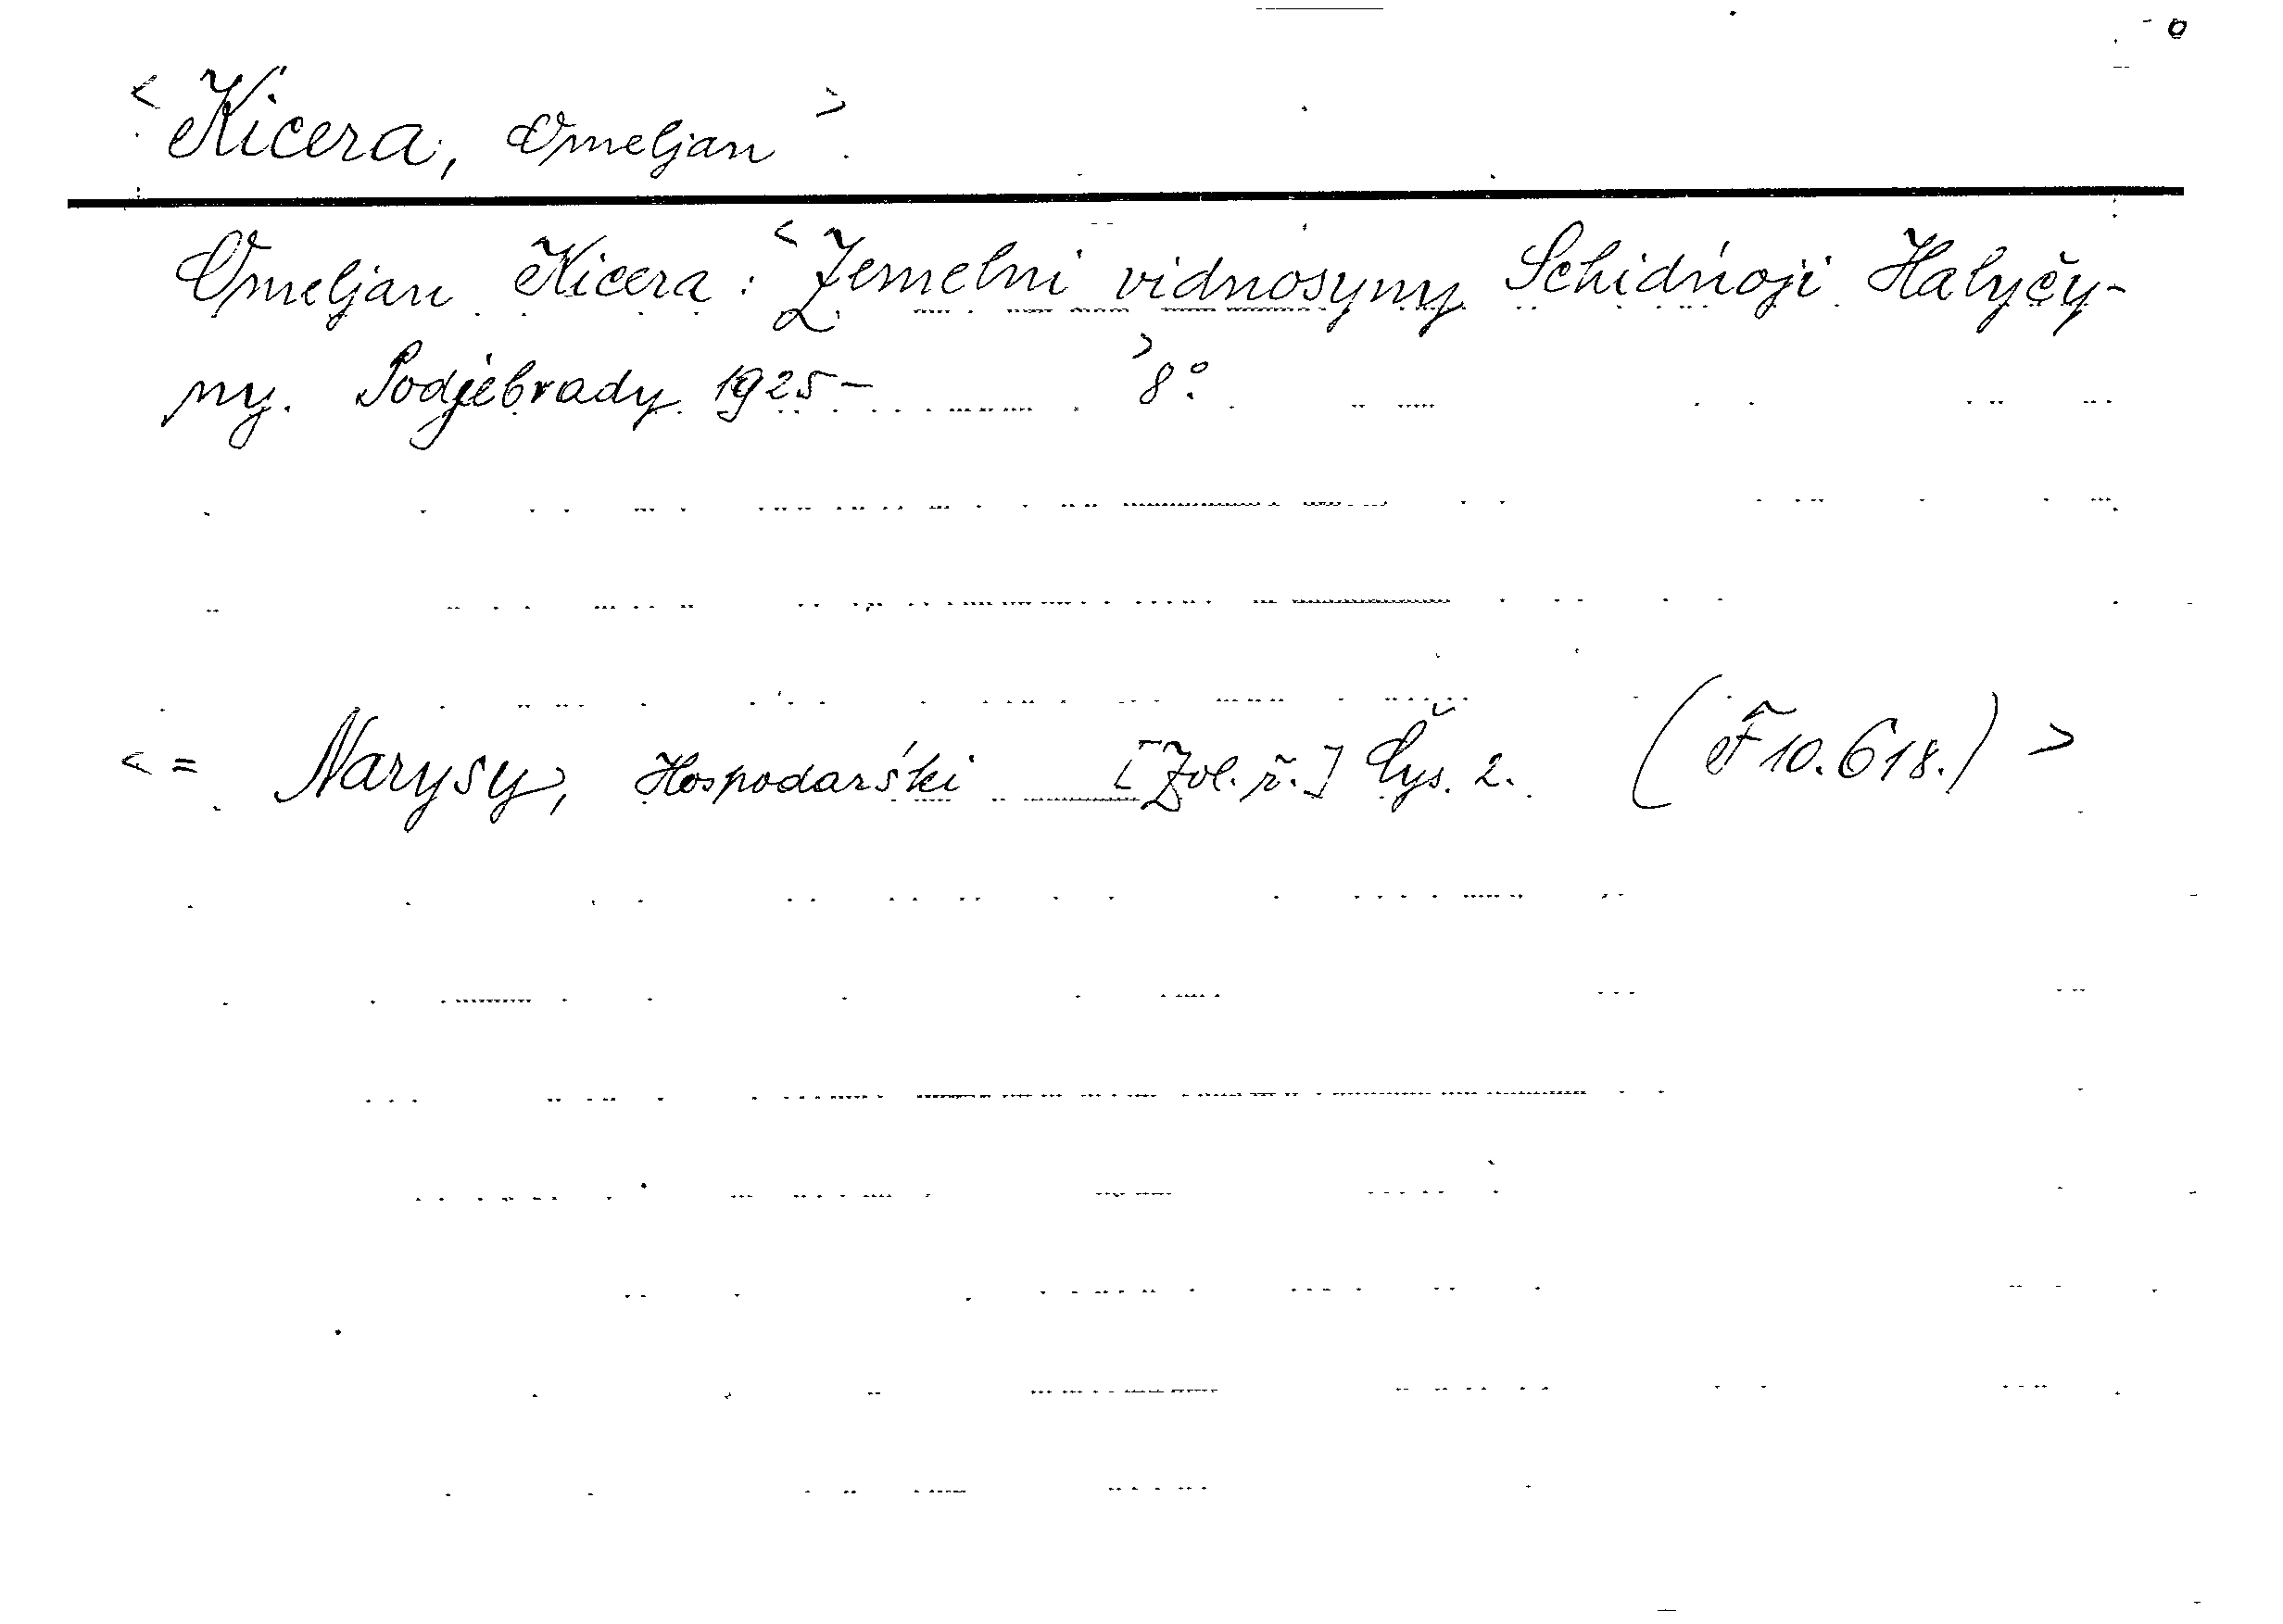 <Kicera, Omeljan>
Omeljan Kicera: <Zemelni vidnosyny Schidńoji Halyčy-
ny. Podjebrady 1925- >8°.
<= Narysy, Hospodarśki [Zvl. ř.] Čys. 2. (F 10.618.)>